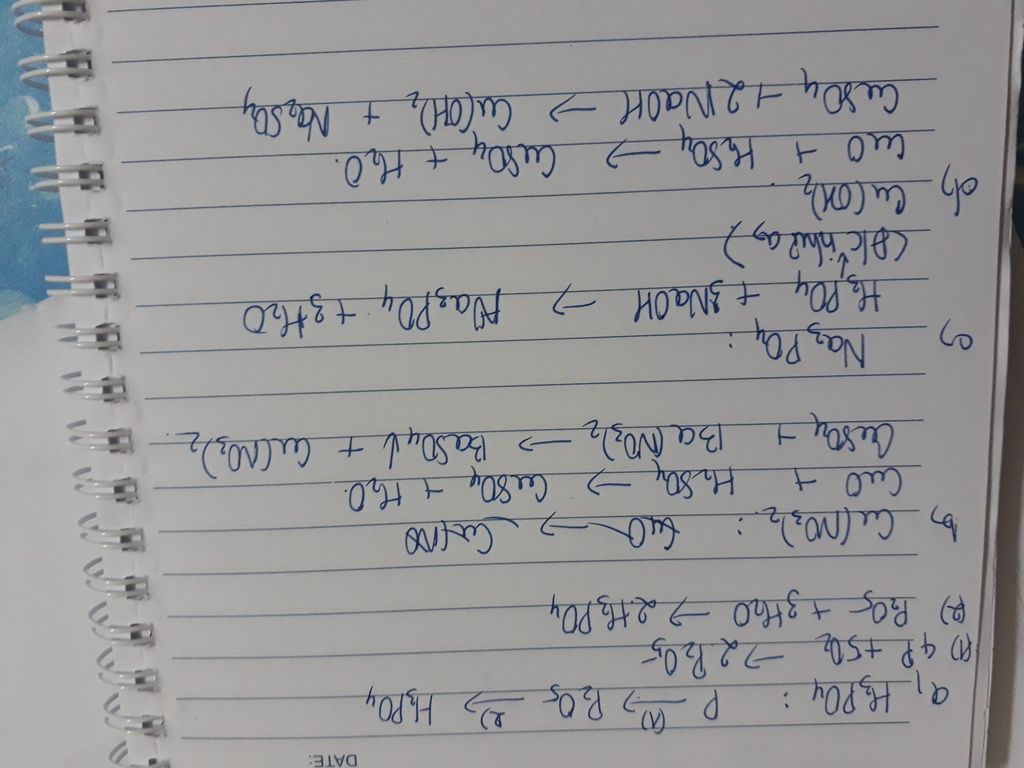 DATE:
a, H₃PO₄ : P —(1)→ P₂O₅ —(2)→ H₃PO₄
(1) 4P + 5O₂ → 2P₂O₅
(2) P₂O₅ + 3H₂O → 2H₃PO₄
b, Cu(NO₃)₂ : CuO → Cu(NO
CuO + H₂SO₄ → CuSO₄ + H₂O.
CuSO₄ + Ba(NO₃)₂ → BaSO₄↓ + Cu(NO₃)₂.
c, Na₃PO₄ :
H₃PO₄ + 3NaOH → Na₃PO₄ + 3H₂O
(đ/c như a,)
d, Cu(OH)₂.
CuO + H₂SO₄ → CuSO₄ + H₂O.
CuSO₄ + 2NaOH → Cu(OH)₂ + Na₂SO₄